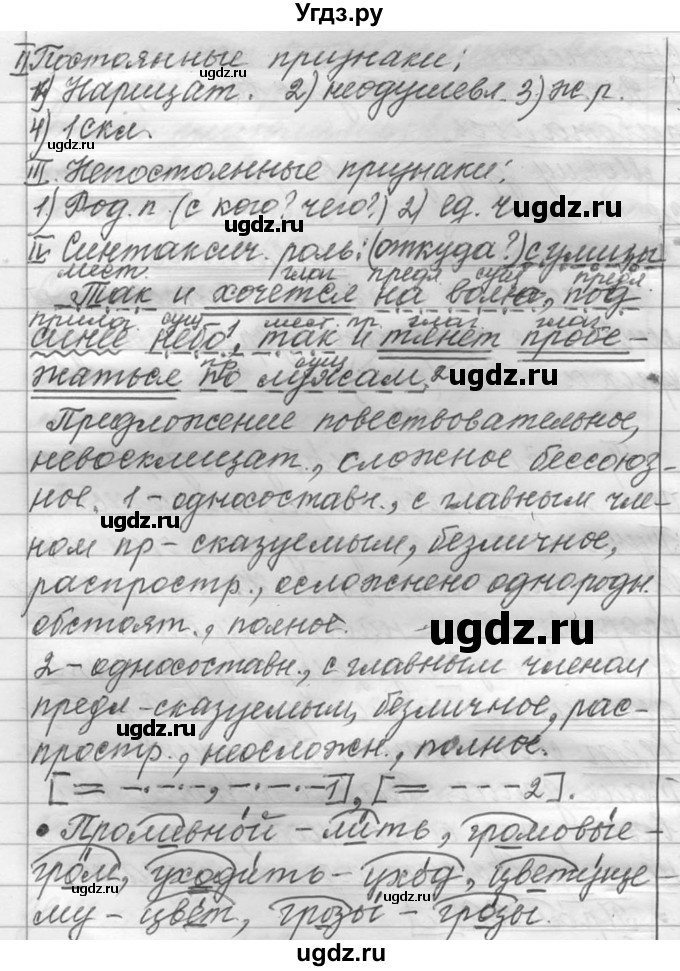 Угдз.ру
II Постоянные признаки:
1) Нарицат. 2) неодушевл. 3) ж.р.
4) 1 скл.
III. Непостоянные признаки:
1) Род.п. (с кого? чего?) 2) ед. ч
IV. Синтаксич. роль: (откуда?) с улицы
мест. глаг предл. сущ предл.
Так и хочется на волю, под
прилаг. сущ. мест. гл. глаг.
синее небо¹, так и тянет пробе-
пр. сущ
жаться по лужам.²
Предложение повествовательное,
невосклицат., сложное бессоюз-
ное. 1 - односоставн., с главным чле-
ном пр - сказуемым, безличное,
распростр., осложнено однородн.
обстоят., полное.
2 - односоставн., с главным членом
предл - сказуемым, безличное, рас-
простр., неосложн., полное.
[= -·-·-, -·-·-1], [= - - - 2].
• Проливной - лить, громовые -
гром, уходить - уход, цветуще-
му - цвет, грозы - грозы.
ugdz.ru
ugdz.ru
ugdz.ru
ugdz.ru
ugdz.ru
ugdz.ru
ugdz.ru
ugdz.ru
ugdz.ru
ugdz.ru
ugdz.ru
ugdz.ru